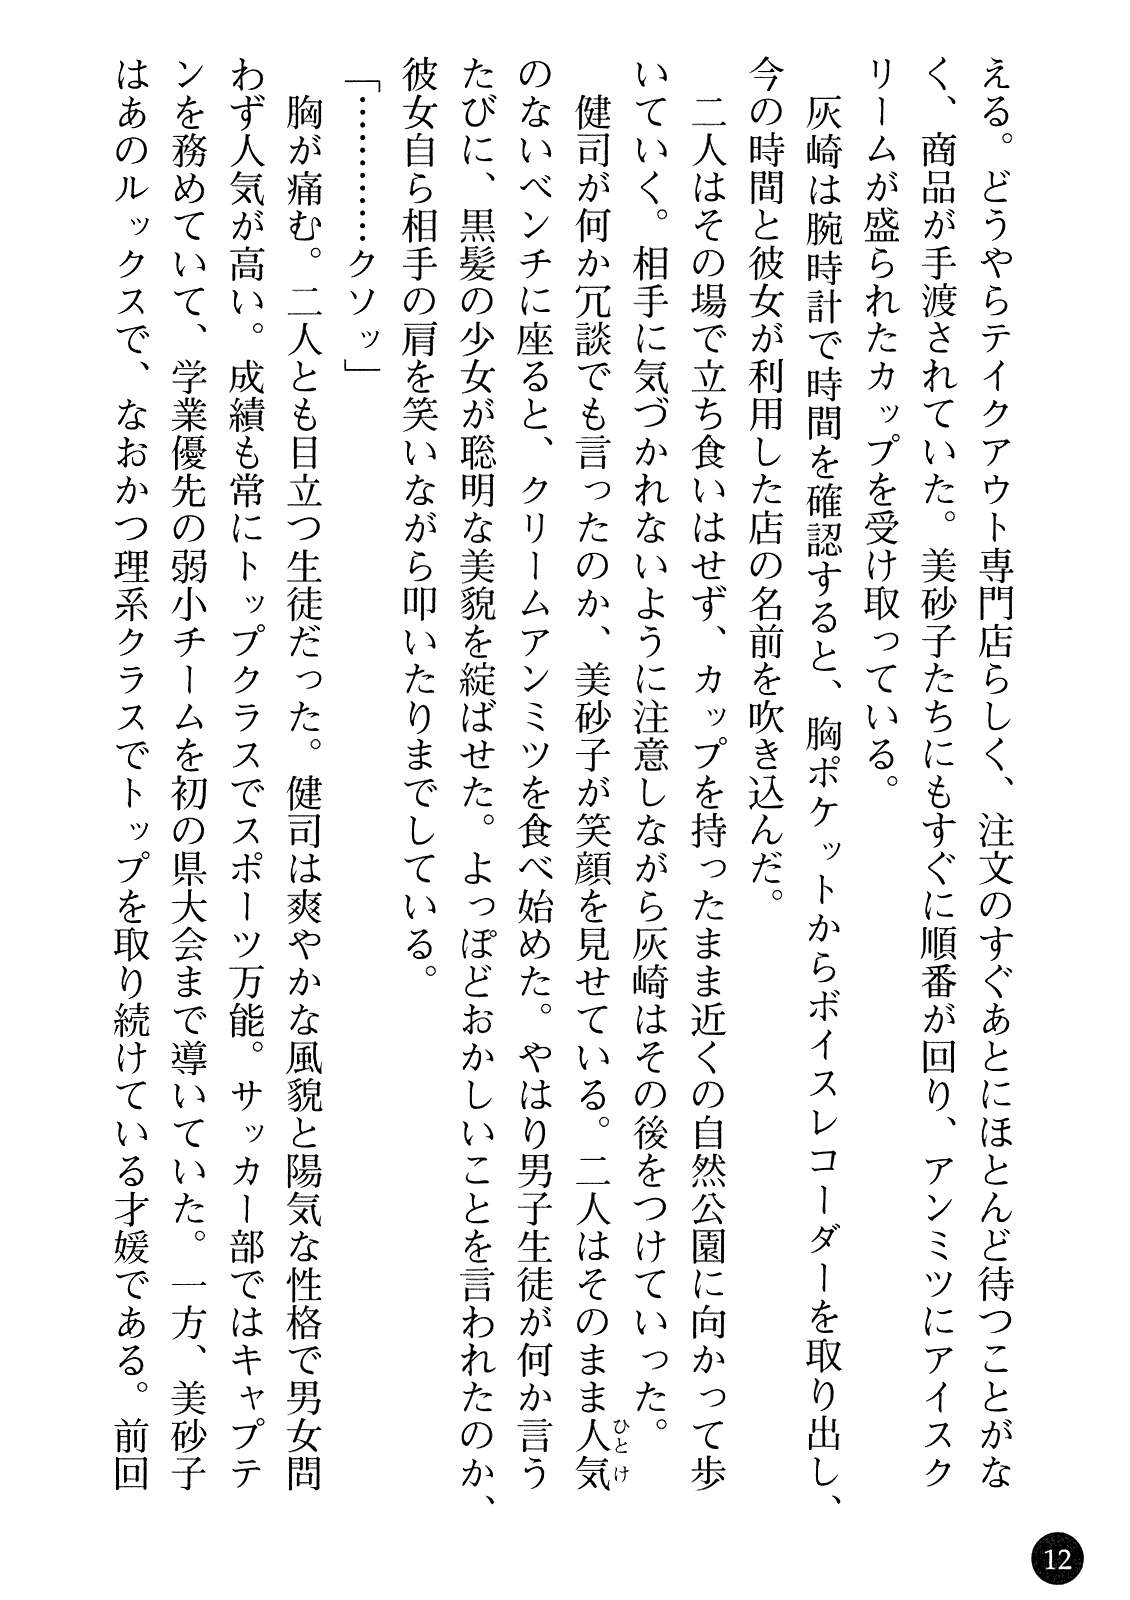 える。どうやらテイクアウト専門店らしく、注文のすぐあとにほとんど待つことがな
く、商品が手渡されていた。美砂子たちにもすぐに順番が回り、アンミツにアイスク
リームが盛られたカップを受け取っている。
灰崎は腕時計で時間を確認すると、胸ポケットからボイスレコーダーを取り出し、
今の時間と彼女が利用した店の名前を吹き込んだ。
二人はその場で立ち食いはせず、カップを持ったまま近くの自然公園に向かって歩
いていく。相手に気づかれないように注意しながら灰崎はその後をつけていった。
健司が何か冗談でも言ったのか、美砂子が笑顔を見せている。二人はそのまま人気
ひとけ
のないベンチに座ると、クリームアンミツを食べ始めた。やはり男子生徒が何か言う
たびに、黒髪の少女が聡明な美貌を綻ばせた。よっぽどおかしいことを言われたのか、
彼女自ら相手の肩を笑いながら叩いたりまでしている。
「…………クソッ」
胸が痛む。二人とも目立つ生徒だった。健司は爽やかな風貌と陽気な性格で男女問
わず人気が高い。成績も常にトップクラスでスポーツ万能。サッカー部ではキャプテ
ンを務めていて、学業優先の弱小チームを初の県大会まで導いていた。一方、美砂子
はあのルックスで、なおかつ理系クラスでトップを取り続けている才媛である。前回
12